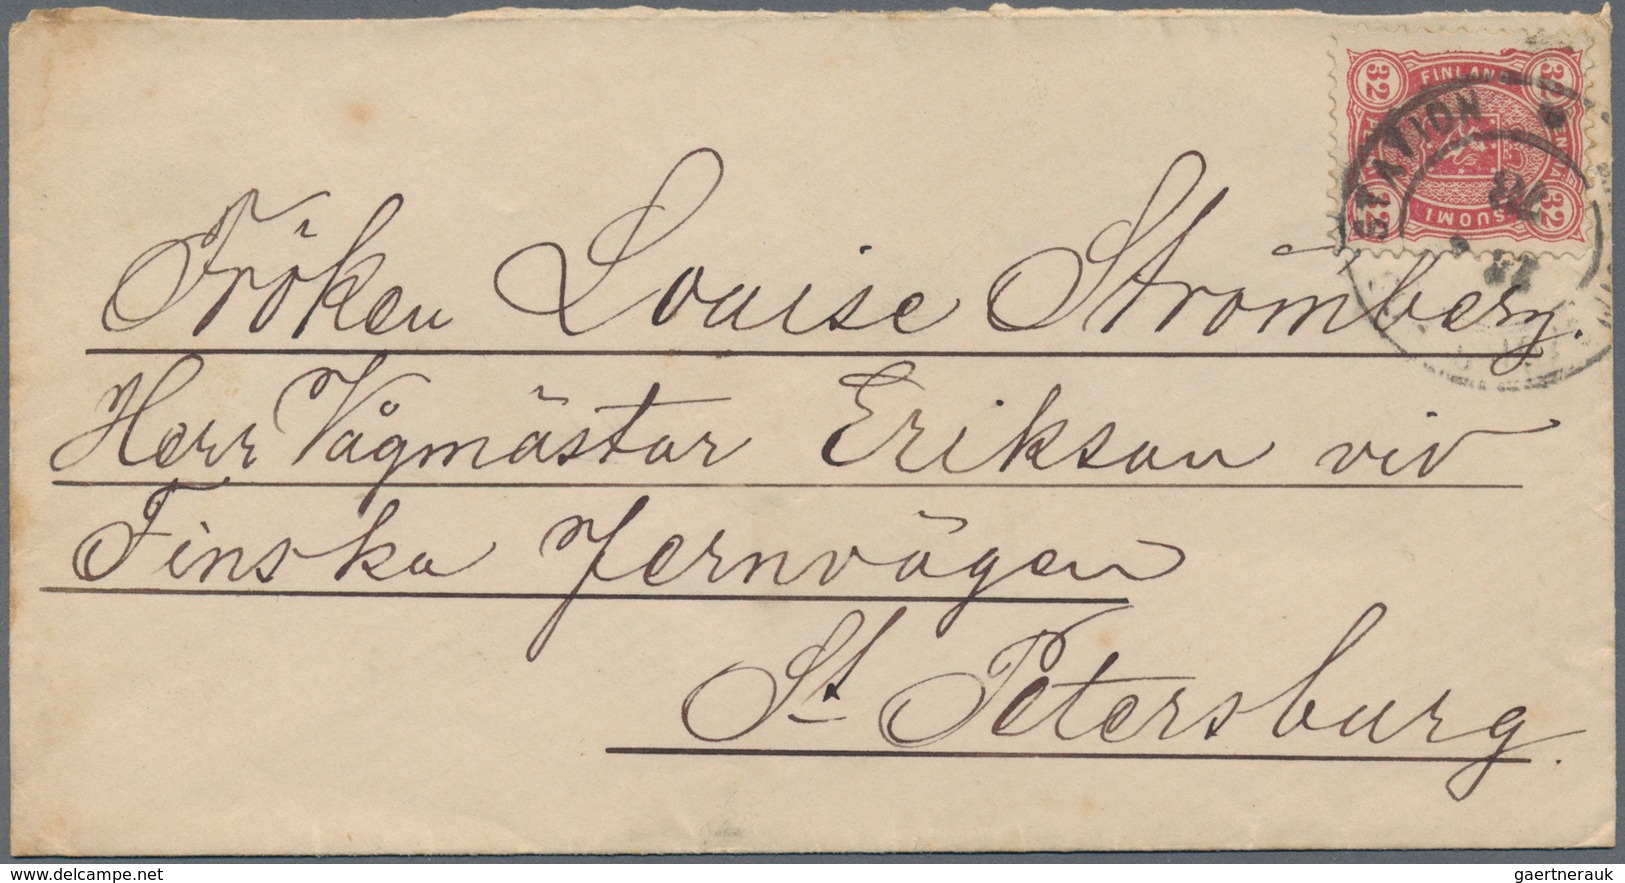 32 FINLAND 32
PENNIÄ PENNIÄ
32 SUOMI 32
STATION
Fröken Louise Strömberg.
Herr Vågmästar Erikson vid
Finska Jernvägen
St Petersburg.
www.delcampe.net
gaertnerauk